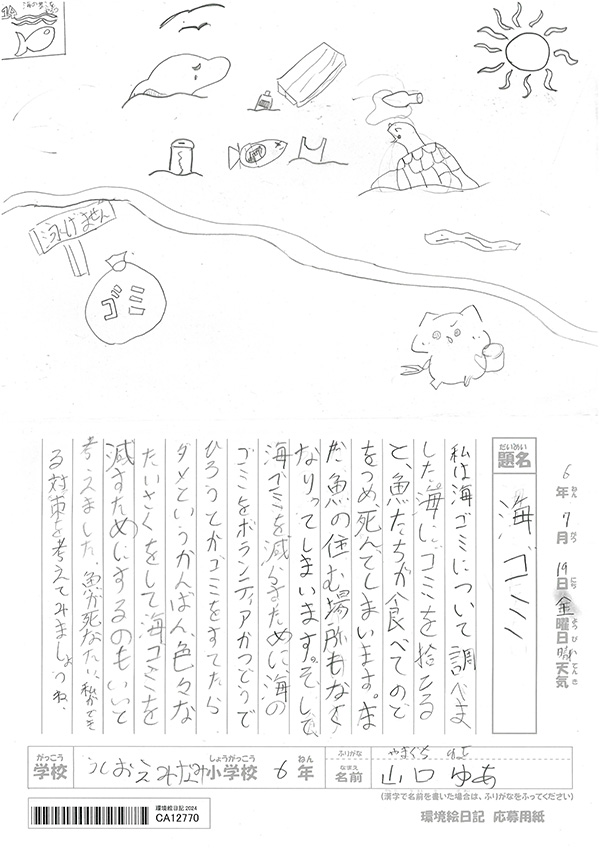 泳げません
ゴミ
6年7月19日金曜日晴天気
ねん がつ にち ようび てんき
だいめい
題名
海ゴミ
私は海ゴミについて調べま
した。海にゴミを捨てる
と、魚たちが食べてのど
をつめ死んでしまいます。ま
た魚の住む場所もなく
なりってしまいます。そして
海ゴミを減らすために、海の
ゴミをボランティアかつどうで
ひろうとかゴミをすてたら
ダメというかんばん、色々な
たいさくをして海ゴミを
減すためにするのもいいと
考えました、魚が死なたい、私ができ
る対策を考えてみましょうね、
がっこう
学校
うしおえみなみ小学校 6年
しょうがっこう ねん
ふりがな
やまぐち
なまえ
名前
山口 ゆあ
(漢字で名前を書いた場合は、ふりがなをふってください)
環境絵日記2024
CA12770
環境絵日記 応募用紙